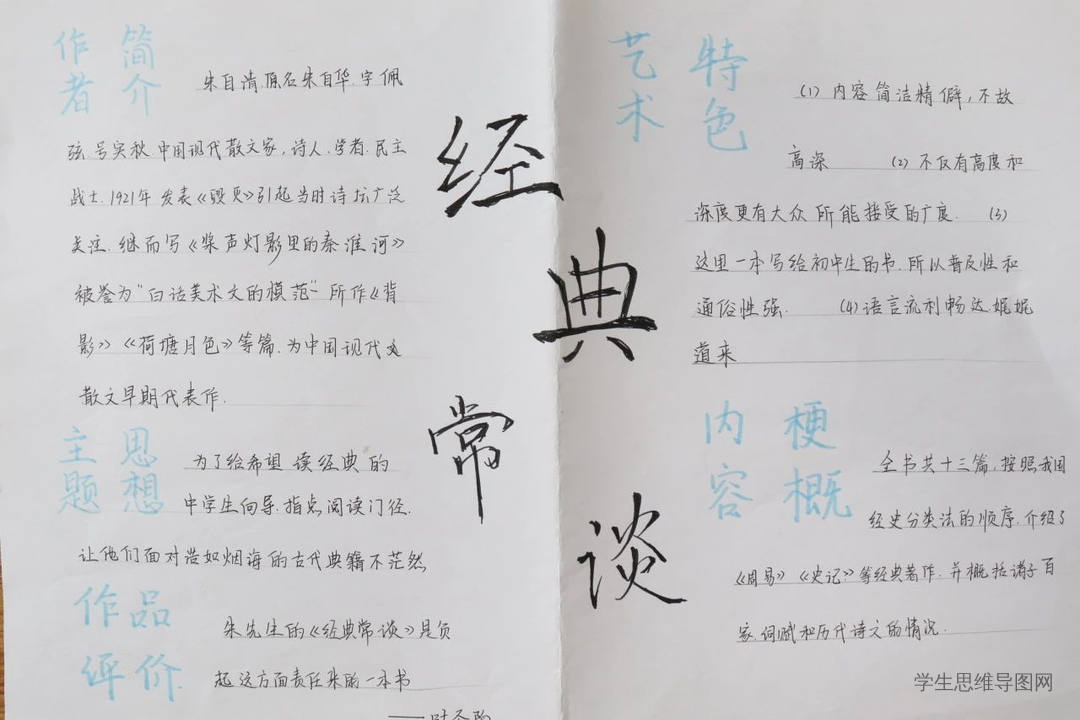 作者简介
朱自清,原名朱自华,字佩
弦,号实秋.中国现代散文家,诗人,学者.民主
战士.1921年发表《毁灭》引起当时诗坛广泛
关注.继而写《桨声灯影里的秦淮河》
被誉为“白话美术文的模范”所作《背
影》《荷塘月色》等篇.为中国现代
散文早期代表作.
主题思想
为了给希望读经典的
中学生向导.指点阅读门径.
让他们面对浩如烟海的古代典籍不茫然
作品评价
朱先生的《经典常谈》是负
起这方面责任来的一本书
经典常谈
艺术特色
(1)内容简洁精僻,不故
高深 (2)不仅有高度和
深度更有大众所能接受的广度. (3)
这里一本写给初中生的书.所以普及性和
通俗性强. (4)语言流利畅达.娓娓
道来
内容梗概
全书共十三篇,按照我国
经史分类法的顺序.介绍了
《周易》《史记》等经典著作.并概括诸子百
家.词赋和历代诗文的情况.
学生思维导图网